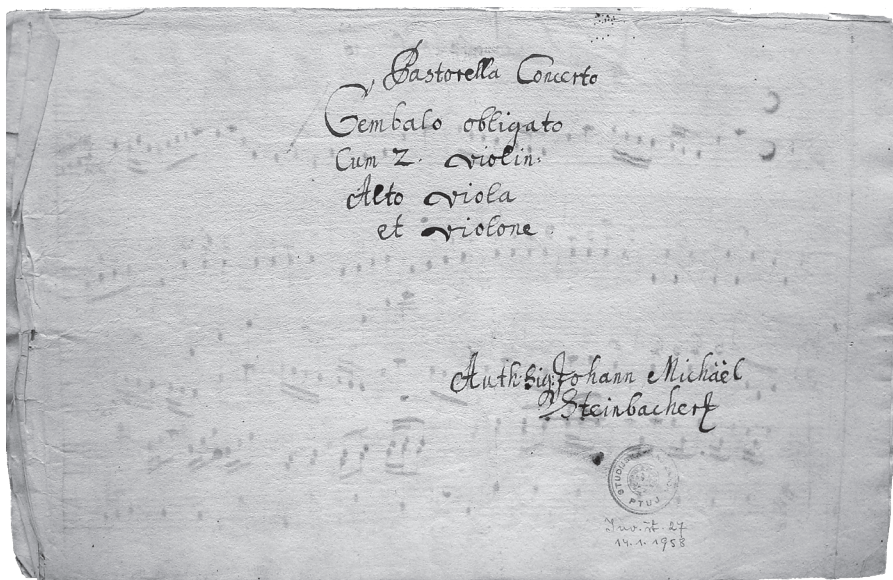 Pastorella Concerto
Cembalo obligato
Cum 2. violin:
Alto viola
et violone
Auth: Sig: Johann Michäel
Steinbacher
PTUJ
Inv. št. 27
14. 1. 1958